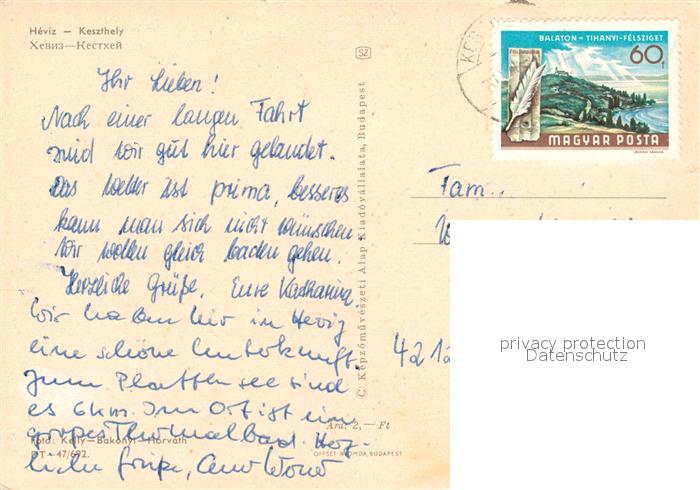 Hévíz — Keszthely
Хевиз—Кестхей
SZ
BALATON – TIHANYI-FÉLSZIGET
60f
MAGYAR POSTA
Ihr Lieben!
Nach einer langen Fahrt
sind wir gut hier gelandet.
Das Wetter ist prima, besseres
kann man sich nicht wünschen.
Wir wollen gleich baden gehen.
Herzliche Grüße, Eure Katharina
Wir haben hir in Heviz
eine schöne Unterkunft.
Zum Plattensee sind
es 6 km. Im Ort ist ein
großes Thermalbad. Herz-
liche Grüße,
Ára: 2,— Ft
Fotó: Kelly—Bakonyi—Horváth
DT—47/692.
OFFSET-NYOMDA, BUDAPEST
C: Képzőművészeti Alap Kiadóvállalata, Budapest
Fam.
4212
privacy protection
Datenschutz